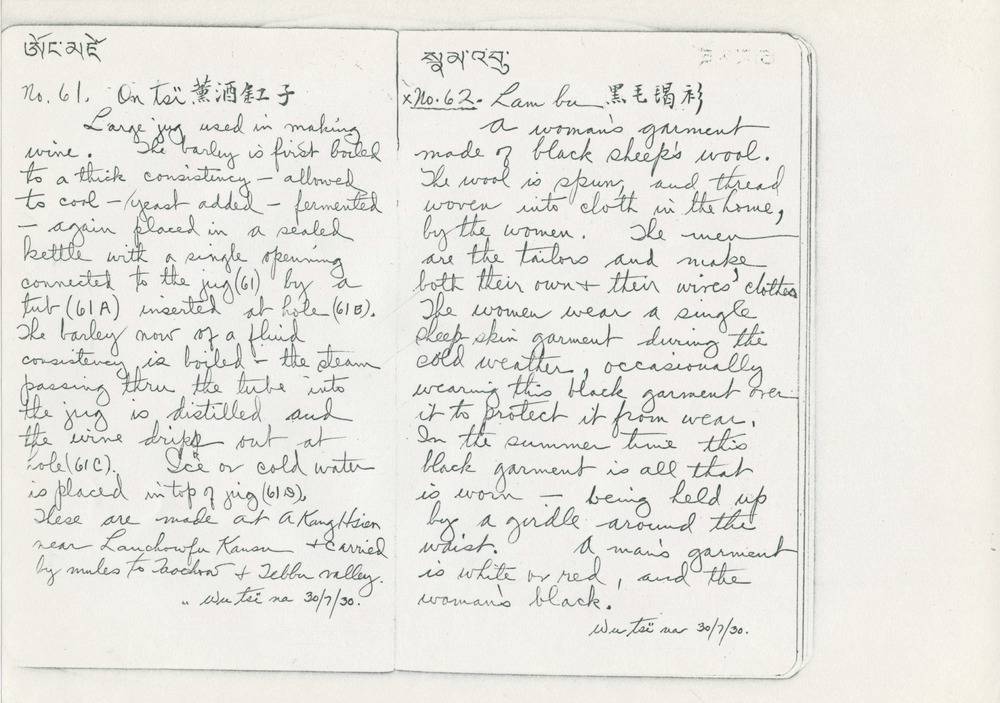 ཨོང་མཛེ
No. 61. On tsï 薰酒缸子
Large jug used in making
wine. The barley is first boiled
to a thick consistency – allowed
to cool – yeast added – fermented
– again placed in a sealed
kettle with a single openning
connected to the jug (61) by a
tub (61A) inserted at hole (61B).
The barley now of a fluid
consistency is boiled – the steam
passing thru the tube into
the jug is distilled and
the wine drips out at
hole (61C). Ice or cold water
is placed in top of jug (61D).
These are made at A Kang Hsien
near Lanchowfu Kansu + carried
by mules to Taochow & Tebbu valley.
" Wu tsï na 30/7/30.
x No. 62. Lam bu 黑毛褐衫
A woman's garment
made of black sheep's wool.
The wool is spun, and thread
woven into cloth in the home,
by the women. The men
are the tailors and make
both their own + their wives' clothes
The women wear a single
sheep skin garment during the
cold weather, occasionally
wearing this black garment over
it to protect it from wear.
In the summer time this
black garment is all that
is worn – being held up
by a girdle around the
waist. A man's garment
is white or red, and the
woman's black.
Wu tsï na 30/7/30.